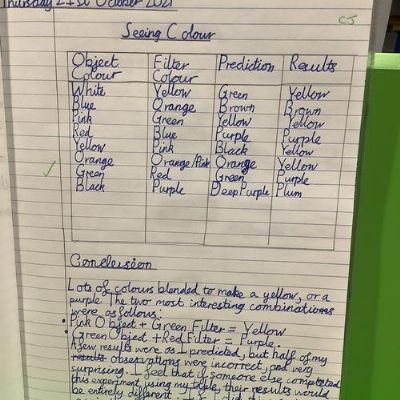 Thursday 21st October 2021
CJ
Seeing Colour
Object Colour Filter Colour Prediction Results
White Yellow Green Yellow
Blue Orange Brown Brown
Pink Green Yellow Yellow
Red Blue Purple Purple
Yellow Pink Black Yellow
Orange Orange/Pink Orange Yellow
Green Red Green Purple
Black Purple Deep Purple Plum
Conclusion
Lots of colours blended to make a yellow, or a
purple. The two most interesting combinations
were as follows:
• Pink Object + Green Filter = Yellow
• Green Object + Red Filter = Purple.
A few results were as I predicted, but half of my
results observations were incorrect, and very
surprising. I feel that if someone else completed
this experiment, using my table, their results would
be entirely different